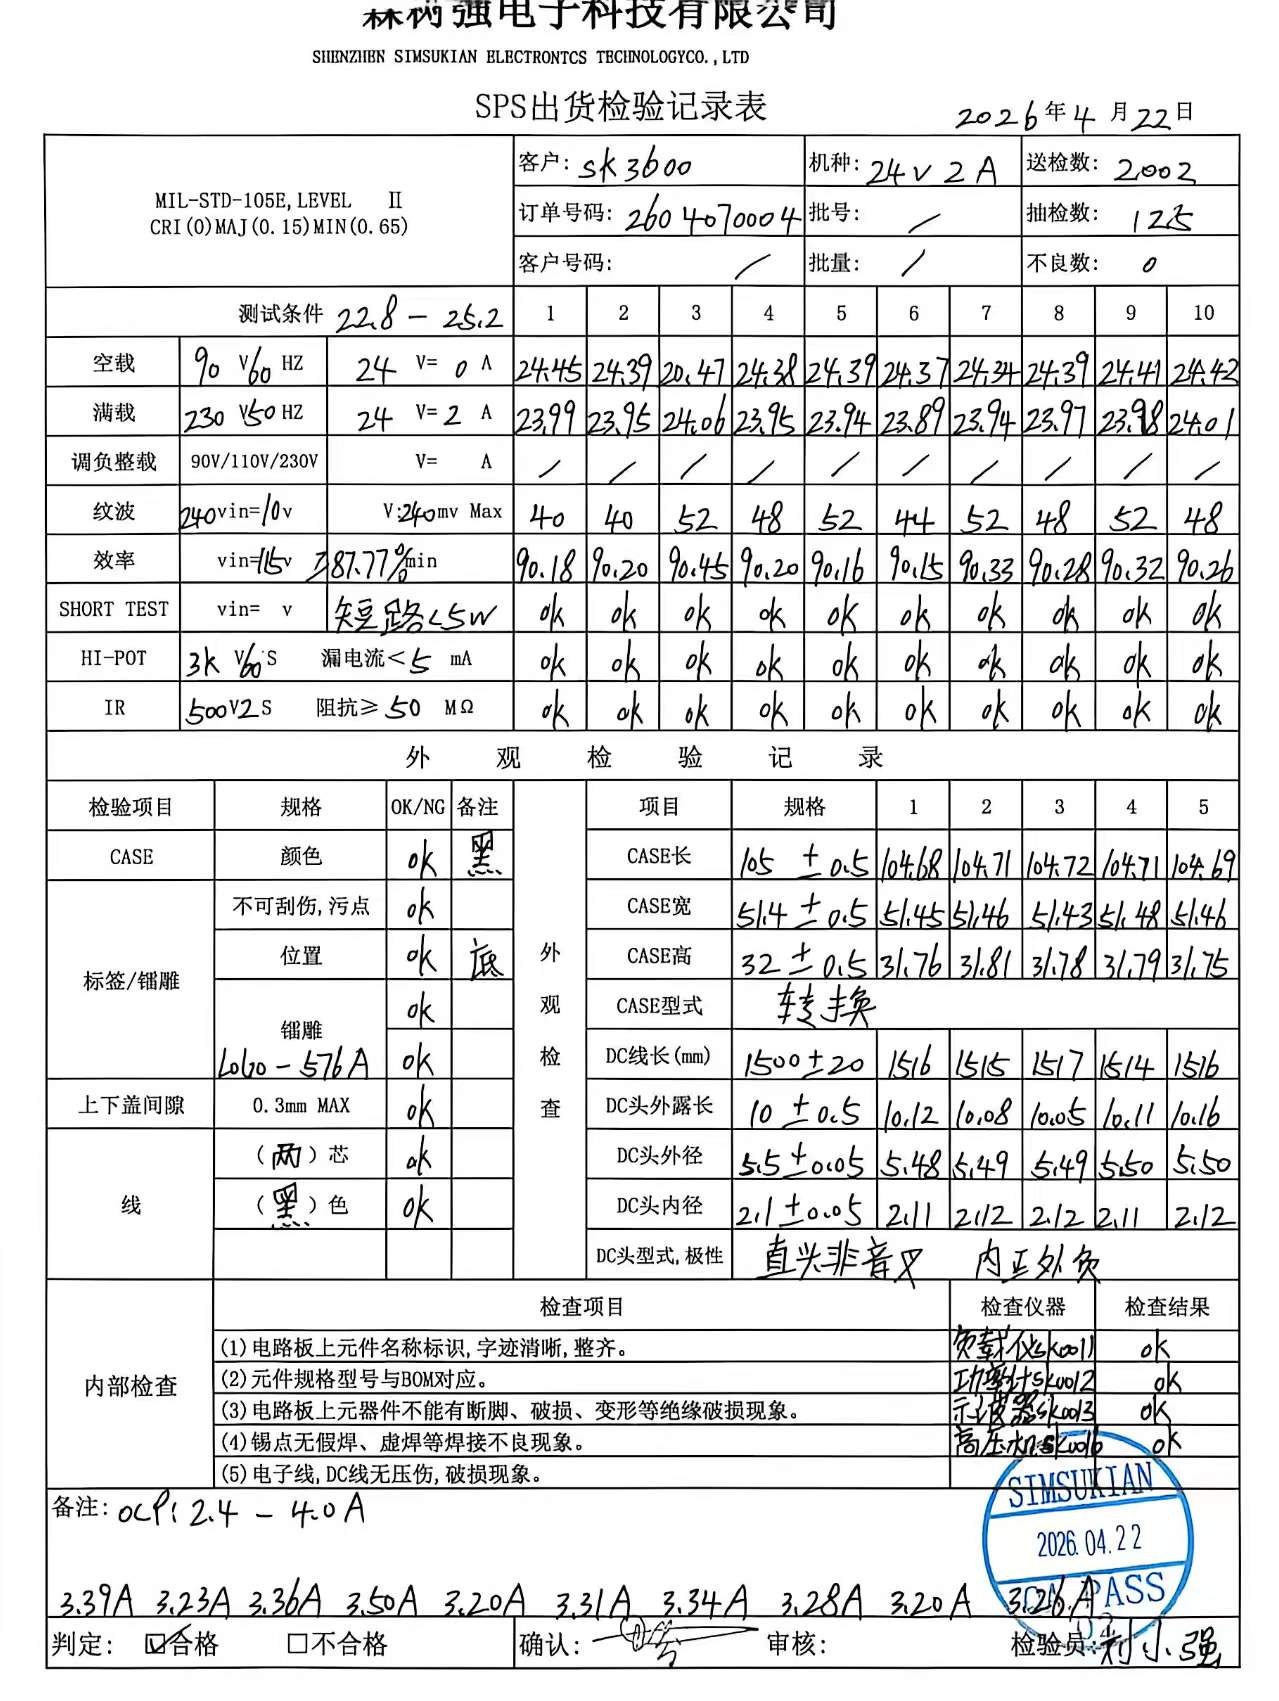 森树强电子科技有限公司
SHENZHEN SIMSUKIAN ELECTRONTCS TECHNOLOGYCO.,LTD
SPS出货检验记录表
2026年4月22日
MIL-STD-105E,LEVEL Ⅱ
CRI(0)MAJ(0.15)MIN(0.65)
客户: SK3600 机种: 24V 2A 送检数: 2002
订单号码: 2604070004 批号: / 抽检数: 125
客户号码: / 批量: / 不良数: 0
测试条件 22.8 - 25.2 1 2 3 4 5 6 7 8 9 10
空载 90 V60 HZ 24 V= 0 A 24.45 24.39 20.47 24.38 24.39 24.37 24.34 24.39 24.41 24.42
满载 230 V50 HZ 24 V= 2 A 23.99 23.95 24.06 23.95 23.94 23.89 23.94 23.97 23.98 24.01
调负整载 90V/110V/230V V= A / / / / / / / / / /
纹波 240vin=10v V:240mv Max 40 40 52 48 52 44 52 48 52 48
效率 vin=115v ≥87.77%min 90.18 90.20 90.45 90.20 90.16 90.15 90.33 90.28 90.32 90.26
SHORT TEST vin= v 短路<5W ok ok ok ok ok ok ok ok ok ok
HI-POT 3K V60 S 漏电流< 5 mA ok ok ok ok ok ok ok ok ok ok
IR 500V2 S 阻抗≥ 50 MΩ ok ok ok ok ok ok ok ok ok ok
外观检验记录
检验项目 规格 OK/NG 备注 项目 规格 1 2 3 4 5
CASE 颜色 ok 黑 CASE长 105 ±0.5 104.68 104.71 104.72 104.71 104.69
不可刮伤,污点 ok CASE宽 51.4 ±0.5 51.45 51.46 51.43 51.48 51.46
标签/镭雕 位置 ok 底 外观检查 CASE高 32 ±0.5 31.76 31.81 31.78 31.79 31.75
ok CASE型式 转换
镭雕 LOGO-576A ok DC线长(mm) 1500±20 1516 1515 1517 1514 1516
上下盖间隙 0.3mm MAX ok DC头外露长 10 ±0.5 10.12 10.08 10.05 10.11 10.16
线 (两)芯 ok DC头外径 5.5±0.05 5.48 5.49 5.49 5.50 5.50
(黑)色 ok DC头内径 2.1±0.05 2.11 2.12 2.12 2.11 2.12
DC头型式,极性 直头非音叉 内正外负
内部检查 检查项目 检查仪器 检查结果
(1)电路板上元件名称标识,字迹清晰,整齐。 负载仪SK0011 ok
(2)元件规格型号与BOM对应。 功率计SK0012 ok
(3)电路板上元器件不能有断脚、破损、变形等绝缘破损现象。 示波器SK0013 ok
(4)锡点无假焊、虚焊等焊接不良现象。 高压机SK0016 ok
(5)电子线,DC线无压伤,破损现象。
SIMSUKIAN
备注: OCP: 2.4 - 4.0A
2026.04.22
3.39A 3.23A 3.36A 3.50A 3.20A 3.31A 3.34A 3.28A 3.20A 3.26A
PASS
02
判定: ☑合格 □不合格 确认: 审核: 检验员: 刘小强